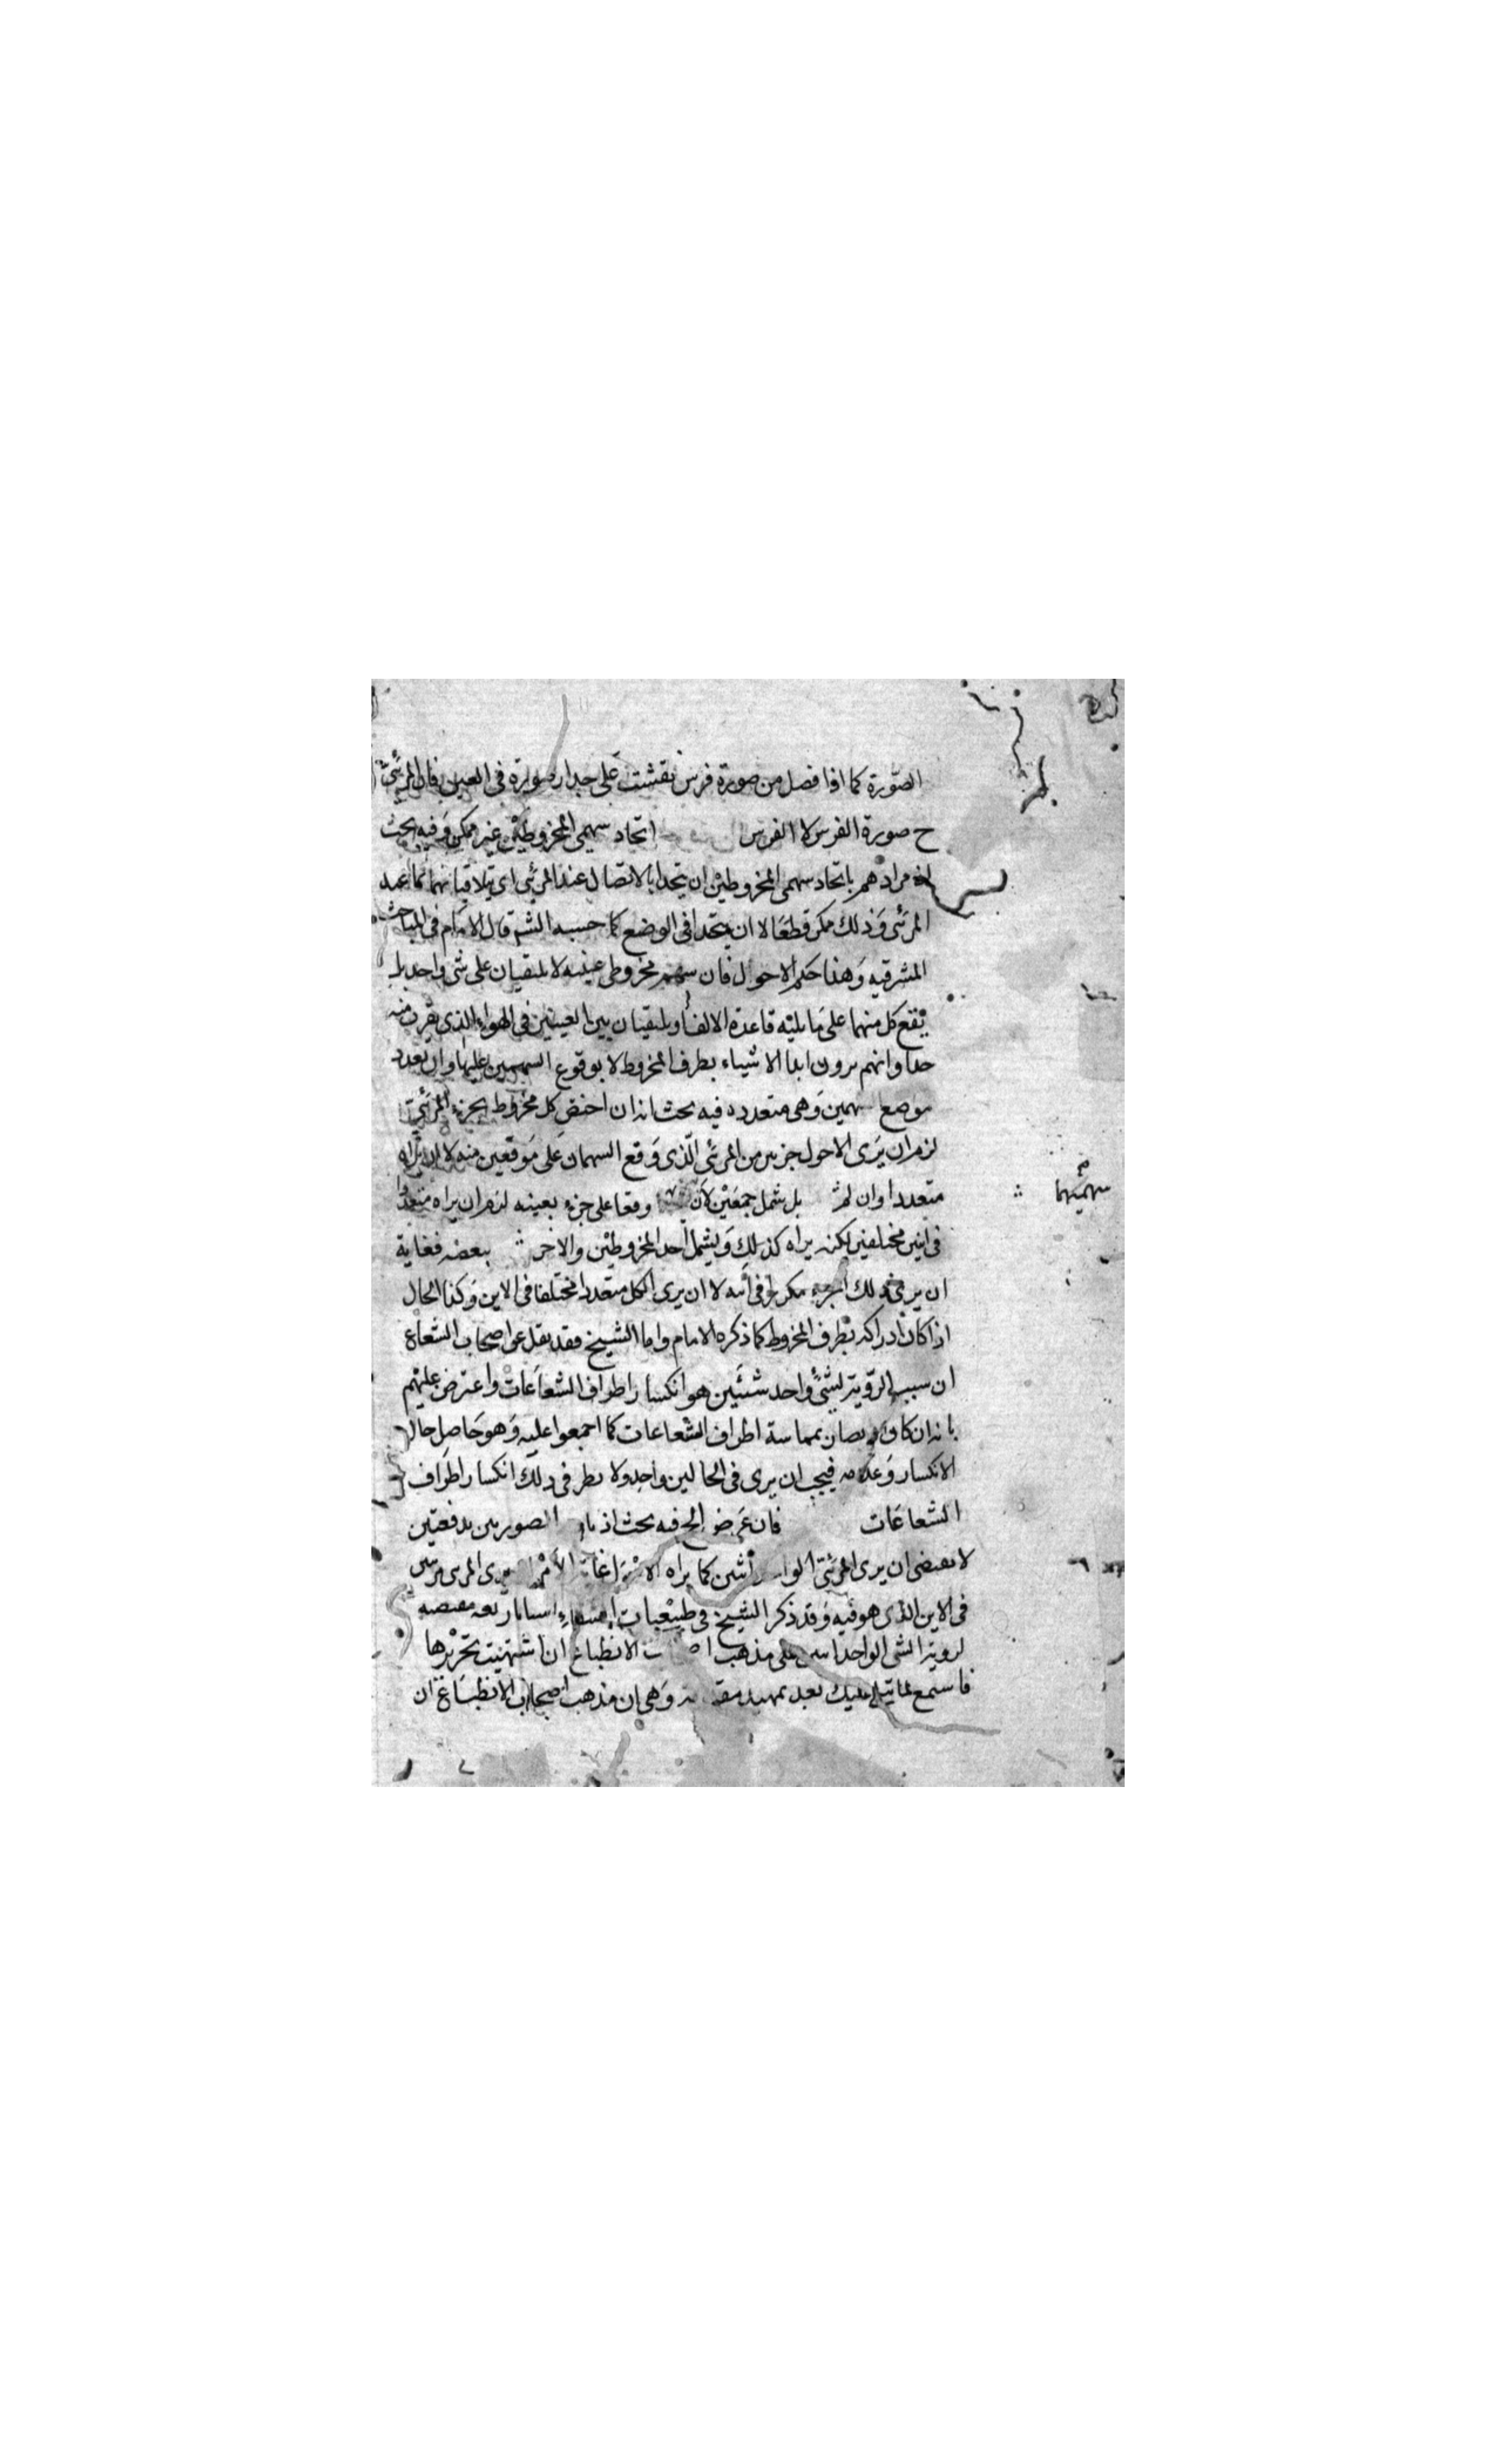 الصّورة كما اذا فصل من صورة فرس نقشت على جدار صورة فى العين فان المرئى
ح صورة الفرس لا الفرس اتحاد سهمى المخروطين غير ممكن وفيه بحث
مرادهم باتحاد سهمى المخروطين ان يتحدا بالاتصال عند المرئى اى يتلاقيا
المرئى وذلك ممكن قطعا لا ان يتحدا فى الوضع كما حسبه الشم قال الامام فى المباحث
المشرقيه وهذا حكم الاحول فان سهم مخروطى عينيه لا يلتقيان على شى واحد بل
يقع كل منهما على ما يليه قاعدة الالف ويلتقيان بين العينين فى الهواء الذى يقرب منه
حدا وانهم يرون ابدا الاشياء بطرف المخروط لا بوقوع السهمين عليها وان تعدد
موضع سهمين وهى متعدده فيه بحث انه ان اختص كل مخروط بجزء المرئى
لزم ان يرى الاحول جزئين من المرئى الّذى وقع السهمان على موقعين منه لا ان يراه
متعددا وان لم بل شمل لان وقعا على جزء بعينه لزم ان يراه متعددا
فى اينين مختلفين لكنه يراه كذلك ويشمل احد المخروطين والاخر بعضه فغاية
ان يرى ذلك الجزء مكررا فى لا ان يرى الكل متعددا مختلفا فى الاين وكذا الحال
اذا كان ادراكه بطرف المخروط كما ذكره الامام واما الشيخ فقد نقل عن اصحاب الشعاع
ان سبب الرّوية لشئ واحد شيئين هو انكسار اطراف الشعاعات واعترض عليهم
بانه ان كان الابصار بمماسة اطراف الشعاعات كما اجمعوا عليه وهو حاصل حال
الانكسار وعدمه فيجب ان يرى فى الحالين واحد ولا نظر فى ذلك انكسار اطراف
الشعاعات فان عرض الخ فيه بحث اذ الصورتين بدفعتين
لا يقتضى ان يرى المرئىّ الواحد اثنين كما يراه يرى المرئى مرتين
فى الاين الذى هو فيه وقد ذكر الشيخ فى طبيعيات الشفاء اسبابا اربعه مقتضيه
لروية الشى الواحد اثنين على مذهب اصحاب الانطباع ان اشتهيت تحريرها
فاستمع لما يتلى عليك بعد تمهيد مقدمة وهى ان مذهب اصحاب الانطباع ان
سهميهما